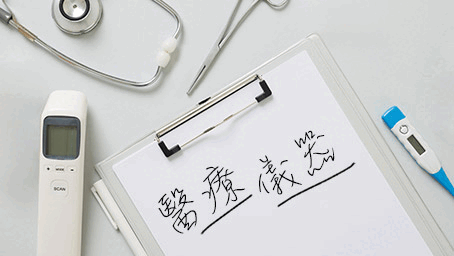 醫療儀器
SCAN